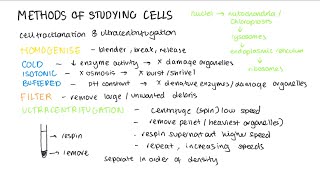 METHODS OF STUDYING CELLS
cell fractionation & ultracentrifugation
HOMOGENISE - blender, break, release
COLD ~ ↓ enzyme activity → × damage organelles
ISOTONIC - × osmosis → × burst/shrivel
BUFFERED - pH constant → × denature enzymes/damage organelles
FILTER - remove large/unwanted debris
ULTRACENTRIFUGATION - centrifuge (spin) low speed
- remove pellet (heaviest organelles)
- respin supernatant higher speed
- repeat, increasing speeds
separate in order of density
→ respin
→ remove
nucleus → mitochondria/
chloroplasts
↓
lysosomes
↓
endoplasmic reticulum
↓
ribosomes